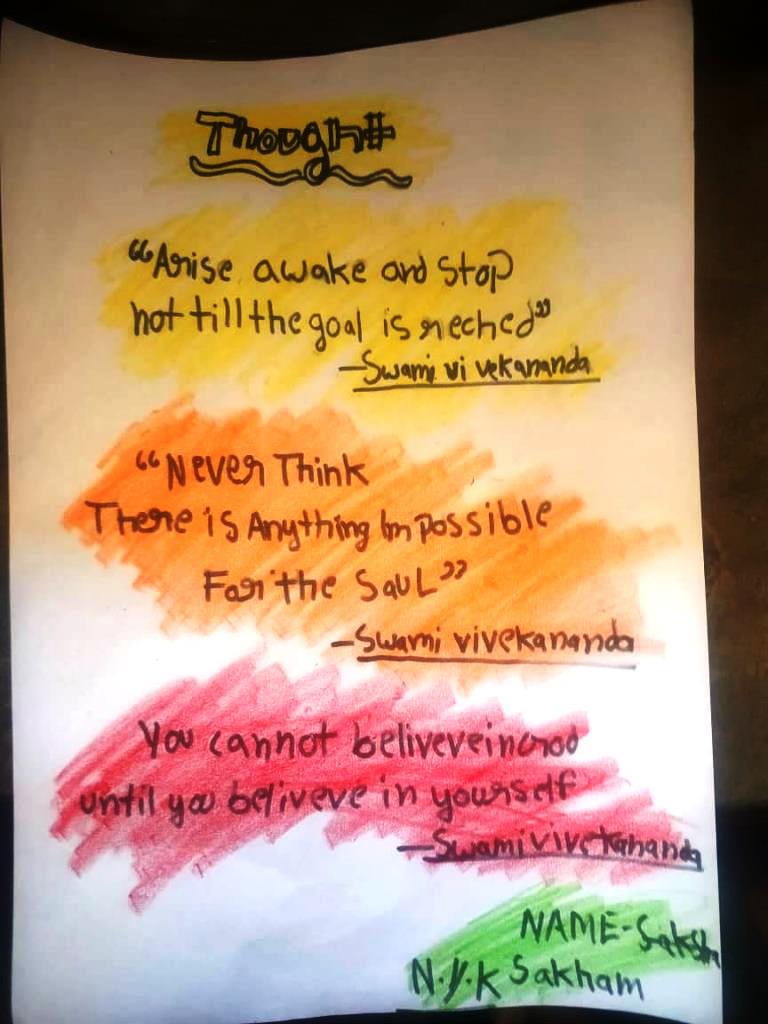 Thought
“Arise awake and stop
not till the goal is reched”
-Swami vi vekananda
“Never Think
There is Anything Impossible
For the SouL”
-Swami vivekananda
You cannot beliveve in God
until you beliveve in yourself
-Swami vivekananda
NAME-
N.y.k Sakham